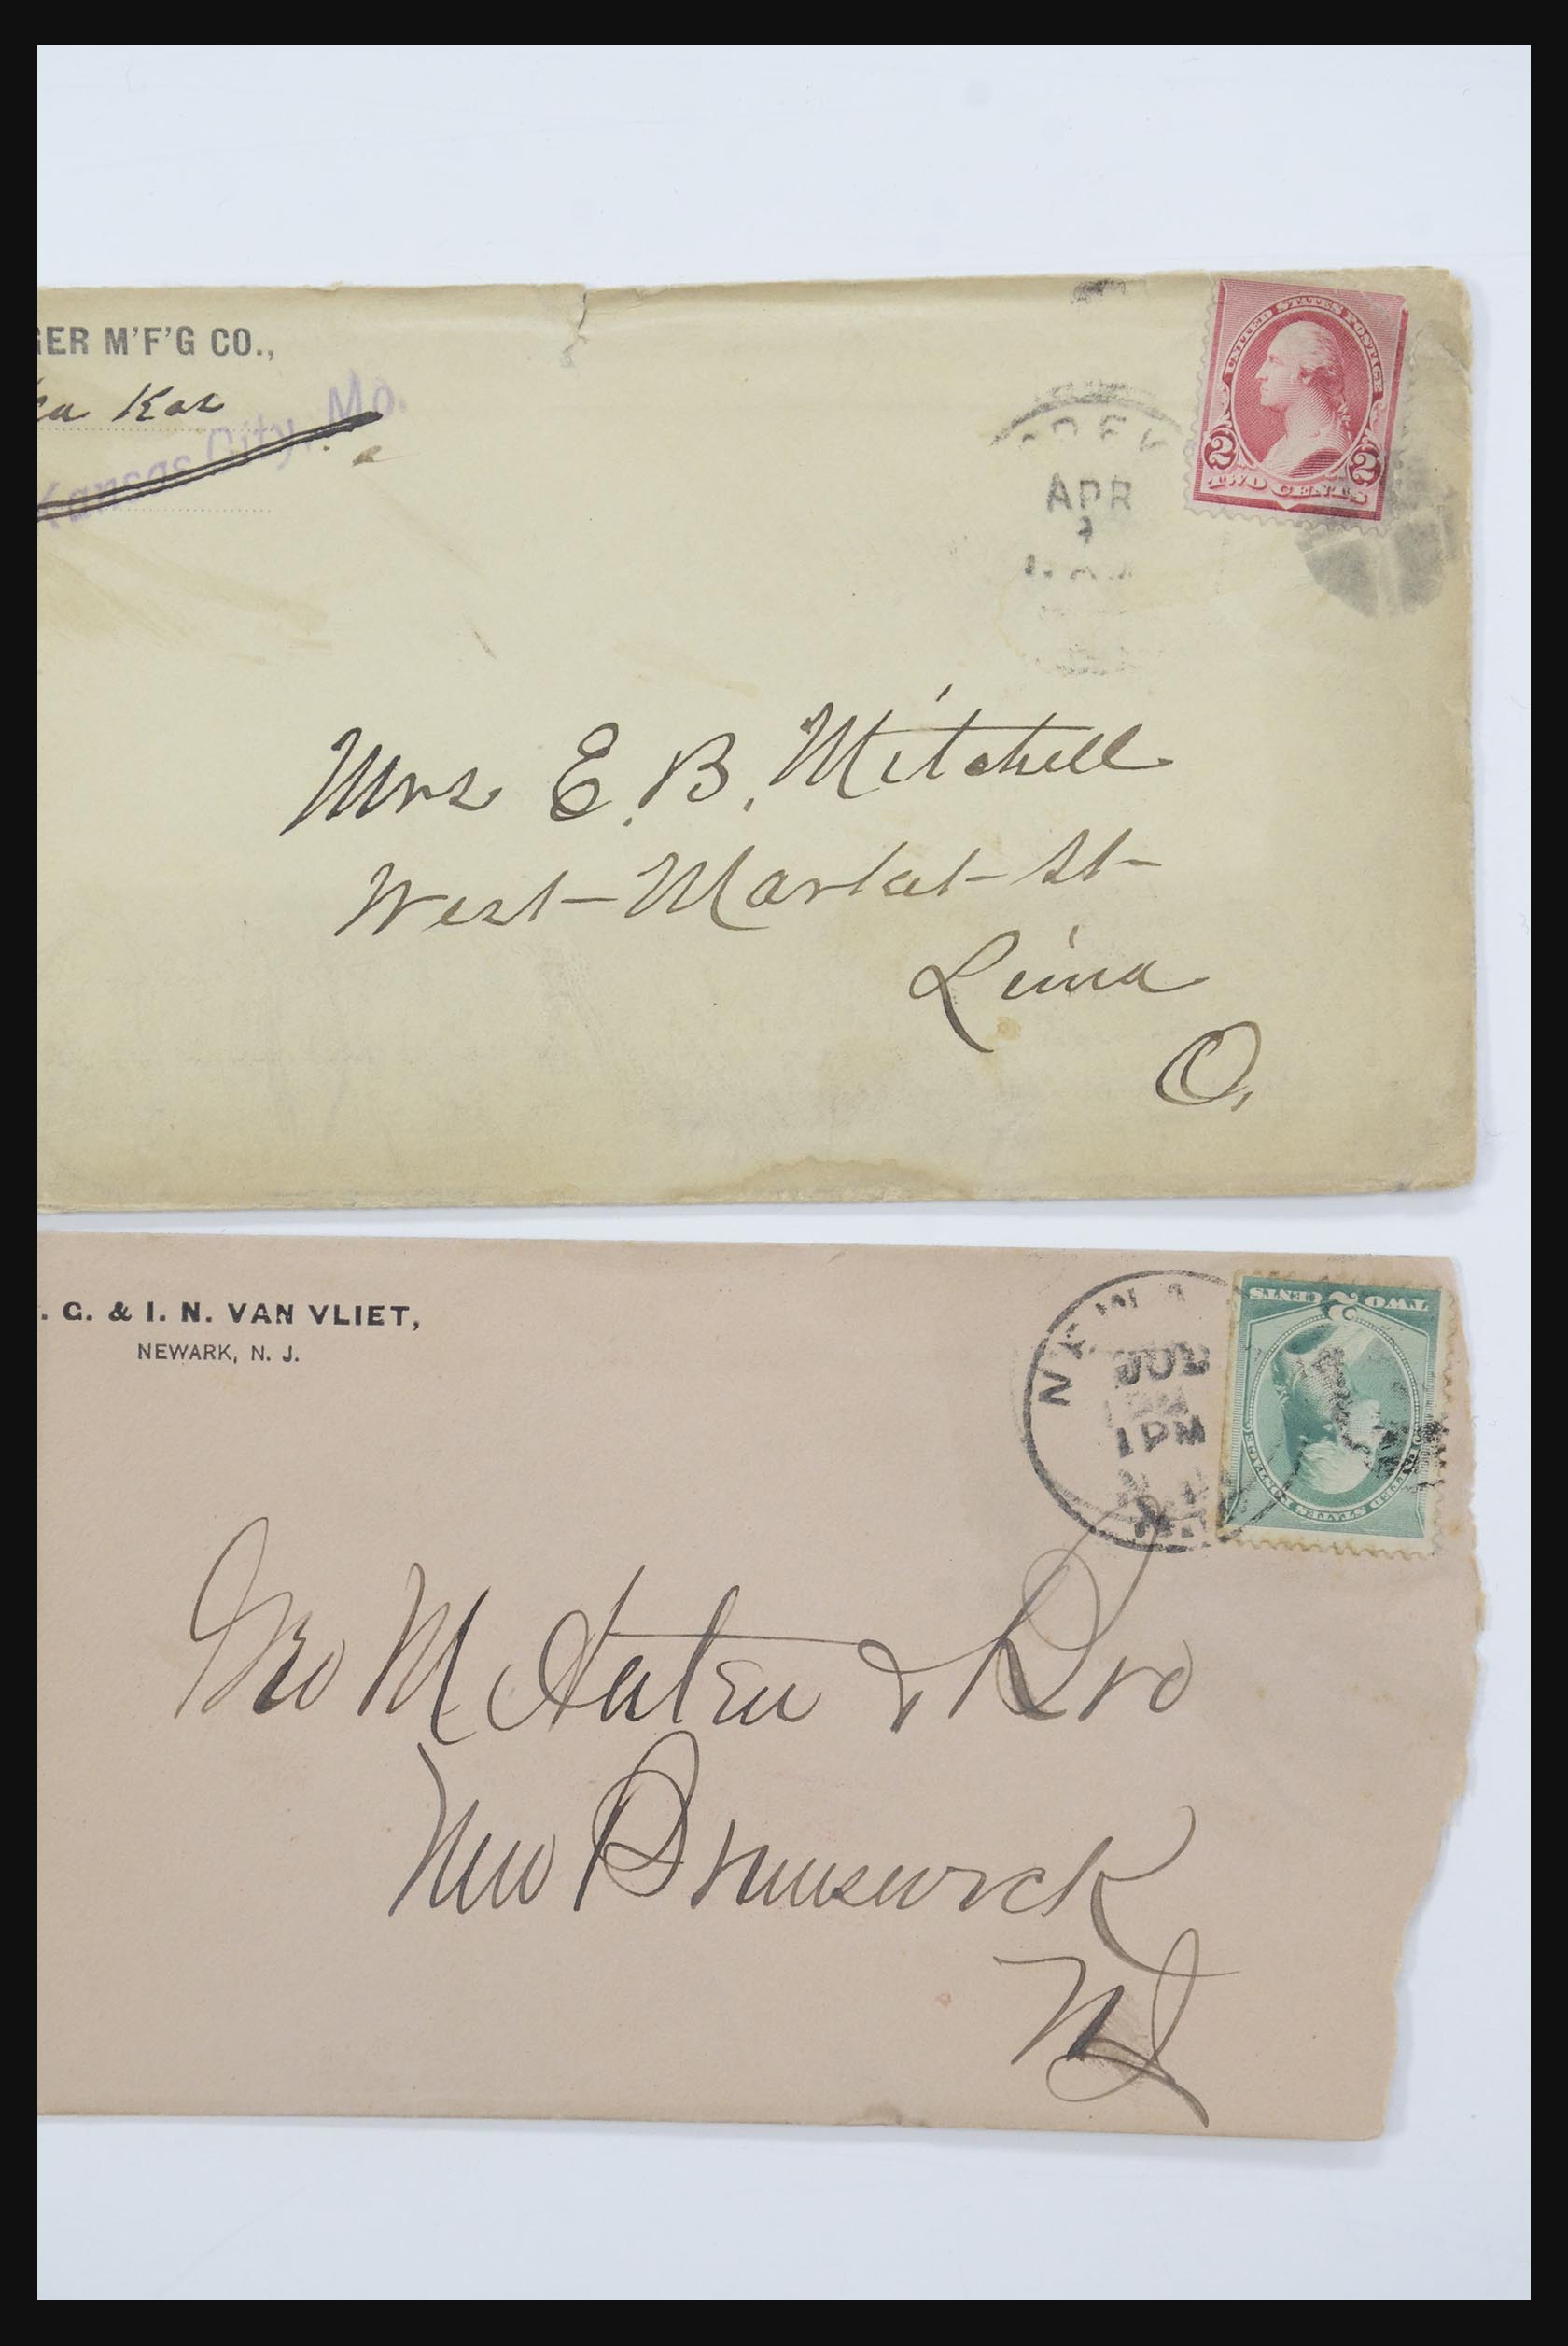 GER M'F'G CO.,
ka Kas
Kansas City, Mo.
UNITED STATES POSTAGE
2 2
TWO CENTS
APR
Mrs E. B. Mitchell
West Market St
Lima
O.
. G. & I. N. VAN VLIET,
NEWARK, N. J.
1 PM
TWO 2 CENTS
UNITED STATES POSTAGE
Geo M & Bro
New Brunswick
NJ